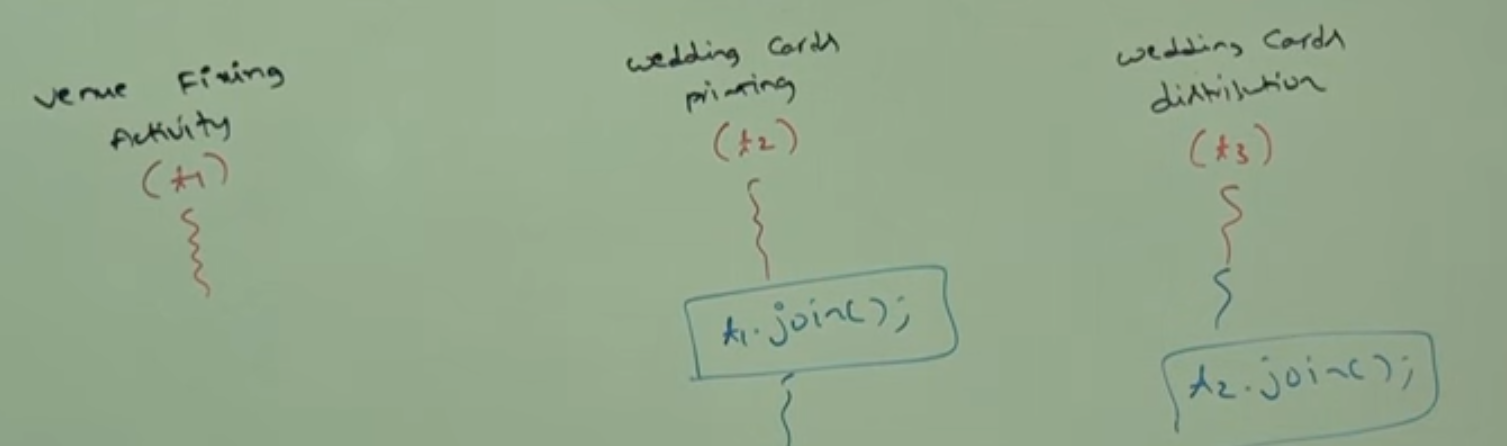 Venue Fixing
Activity
(t1)
wedding Cards
printing
(t2)
t1.join();
wedding Cards
distribution
(t3)
t2.join();